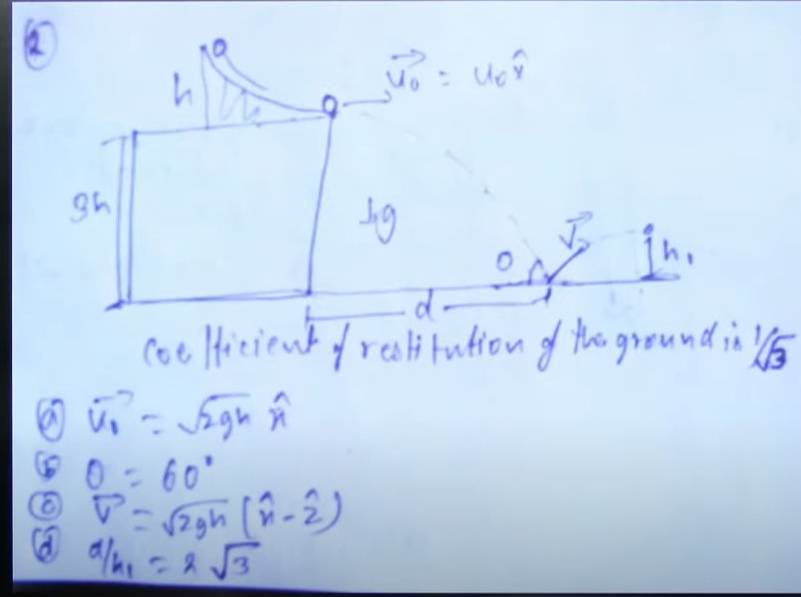 2
h
u₀ = u₀x̂
3h
↓g
θ
v
h₁
d
coefficient of restitution of the ground is 1/√3
(a) u₀ = √2gh x̂
(b) θ = 60°
(c) v = √2gh (x̂ - ẑ)
(d) d/h₁ = 2√3